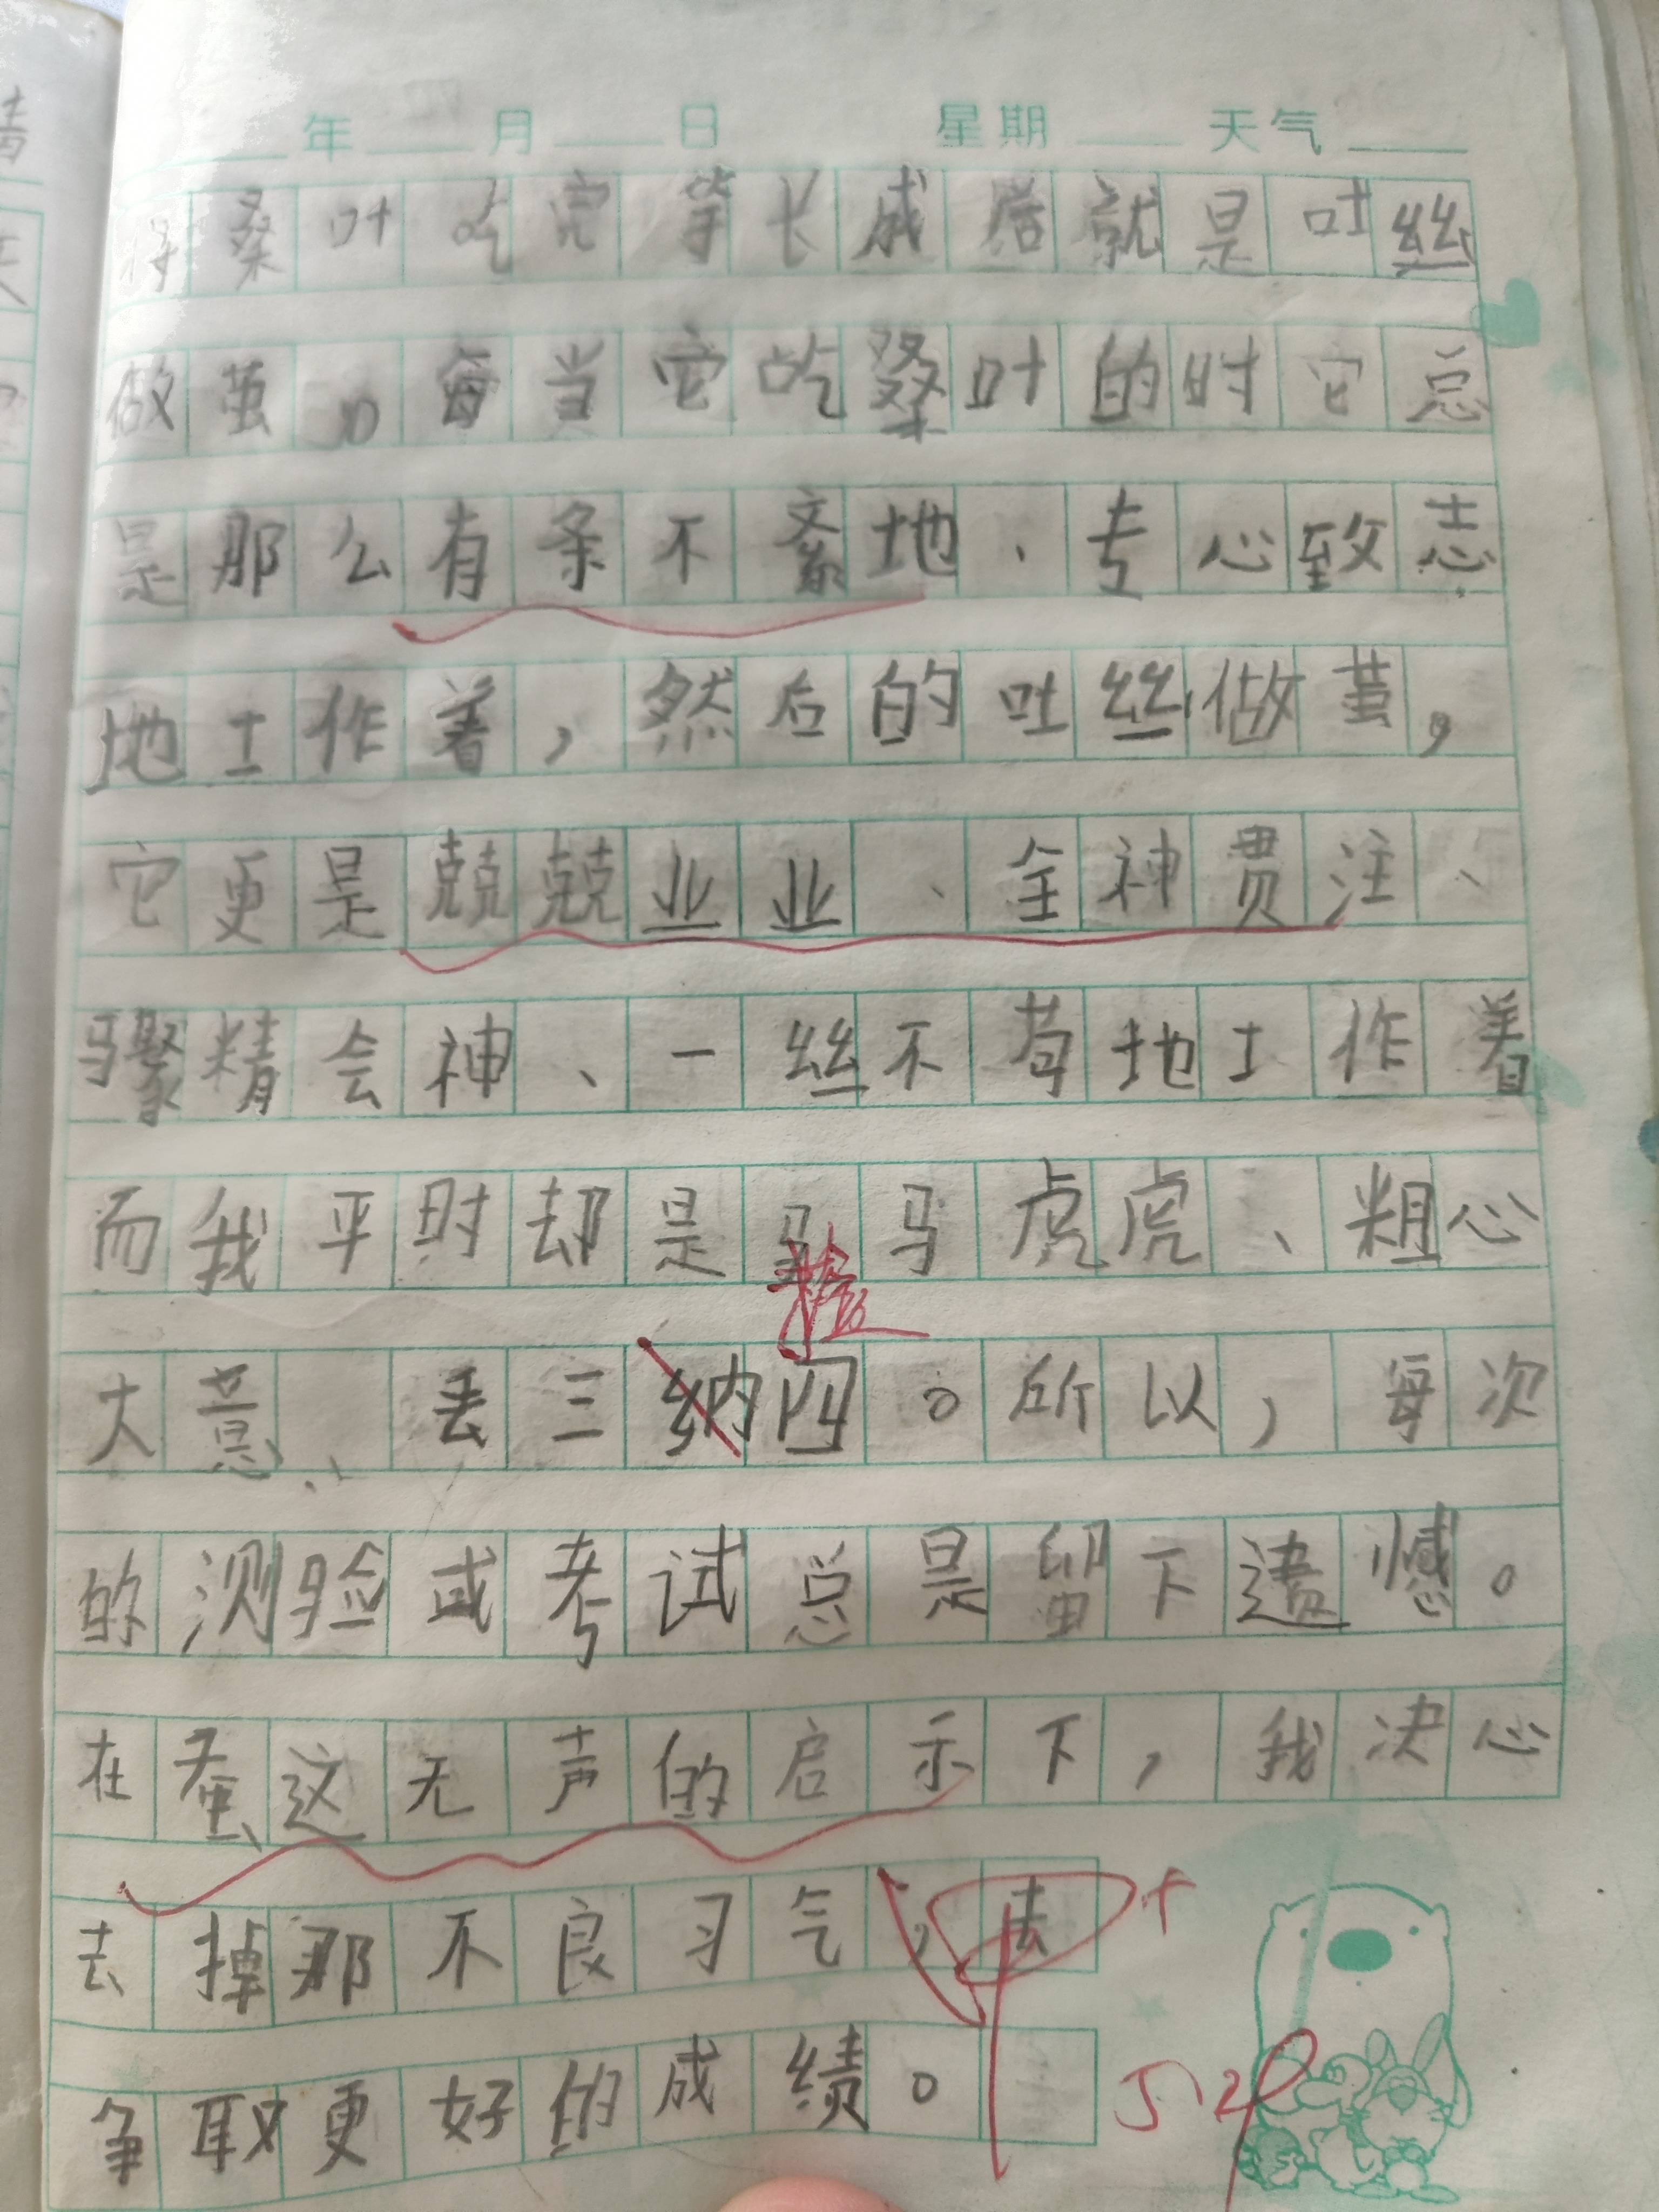 年 月 日 星期 天气
将桑叶吃完等长成后就是吐丝
做茧。每当它吃桑叶的时它总
是那么有条不紊地、专心致志
地工作着，然后的吐丝做茧，
它更是兢兢业业、全神贯注、
聚精会神、一丝不苟地工作着
而我平时却是马马虎虎、粗心
大意、丢三纳四。所以，每次
的测验或考试总是留下遗憾。
在蚕这无声的启示下，我决心
去掉那不良习气，去
争取更好的成绩。
5.29